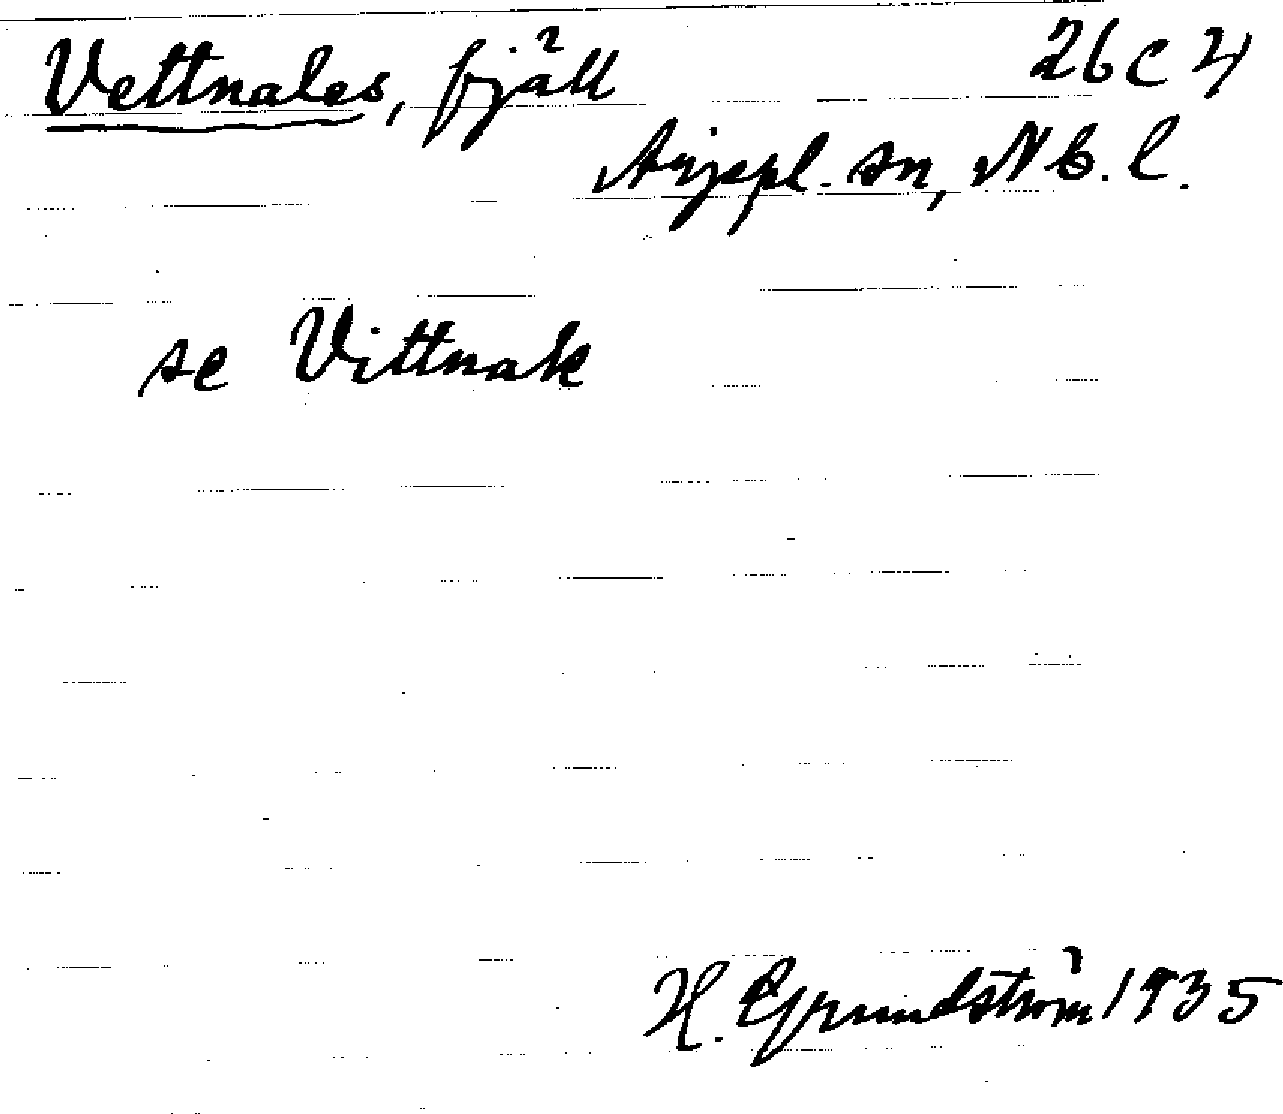 Vettnales, fjäll 26 c 4
Arjepl. sn, N b. l.
se Vittnak
H. Grundström 1935